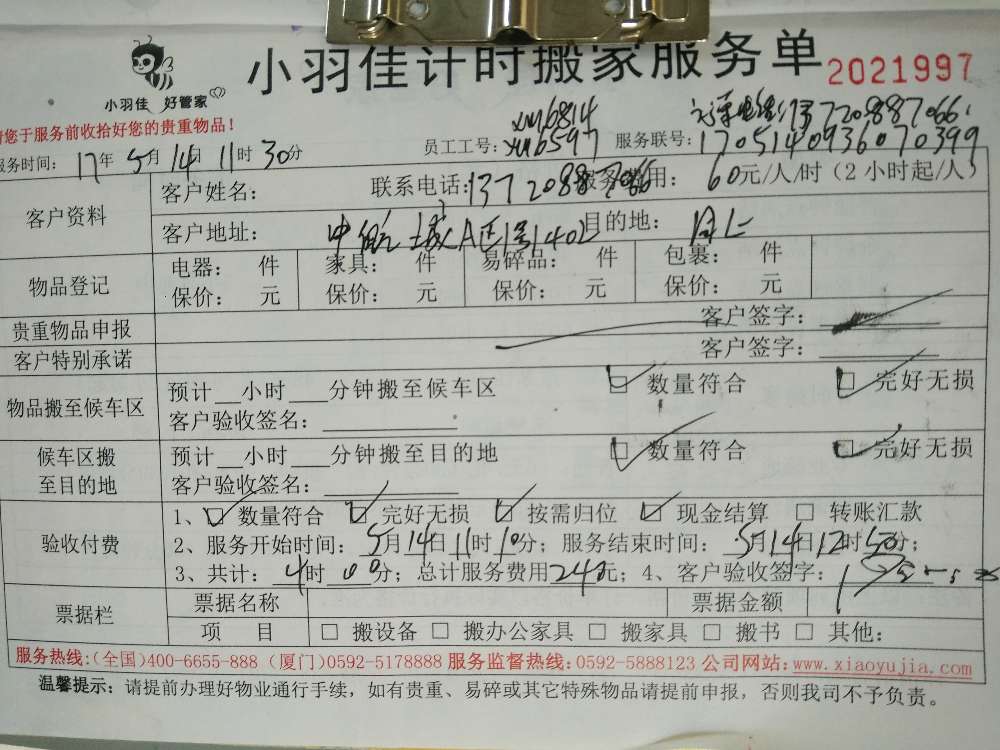 小羽佳计时搬家服务单
2021997
小羽佳 好管家
请您于服务前收拾好您的贵重物品！
员工工号: xm6814 xm6597
13720887066
服务联号: 1705140936070399
服务时间: 17年5月14日11时30分
客户资料
客户姓名: 联系电话: 13720887066 服务费用: 60元/人/时（2小时起/人）
客户地址: 中航城A区1号1402 目的地:
物品登记
电器: 件 家具: 件 易碎品: 件 包裹: 件
保价: 元 保价: 元 保价: 元 保价: 元
贵重物品申报 客户签字:
客户特别承诺 客户签字:
物品搬至候车区
预计__小时___分钟搬至候车区 ☑ 数量符合 ☑ 完好无损
客户验收签名:
候车区搬至目的地
预计__小时___分钟搬至目的地 ☑ 数量符合 ☑ 完好无损
客户验收签名:
验收付费
1、☑ 数量符合 ☑ 完好无损 ☑ 按需归位 ☑ 现金结算 □ 转账汇款
2、服务开始时间: 5月14日11时10分; 服务结束时间: 5月14日12时50分;
3、共计: 4时00分; 总计服务费用240元; 4、客户验收签字:
票据栏
票据名称 票据金额
项 目 □ 搬设备 □ 搬办公家具 □ 搬家具 □ 搬书 □ 其他:
服务热线:(全国)400-6655-888 (厦门)0592-5178888 服务监督热线:0592-5888123 公司网站:www.xiaoyujia.com
温馨提示: 请提前办理好物业通行手续，如有贵重、易碎或其它特殊物品请提前申报，否则我司不予负责。